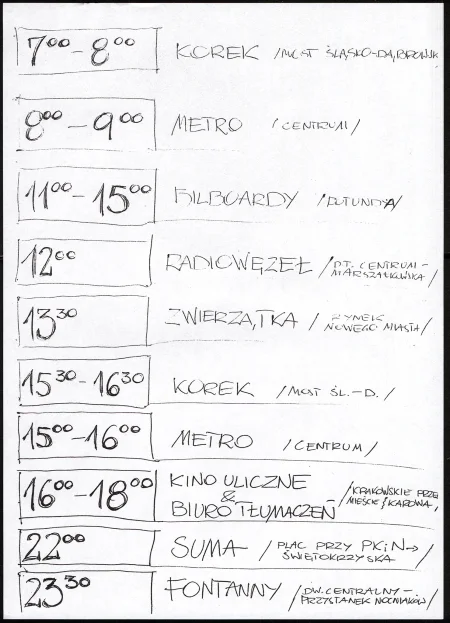 7⁰⁰ – 8⁰⁰ KOREK /MOST ŚLĄSKO-DĄBROWSK
8⁰⁰ – 9⁰⁰ METRO /CENTRUM/
11⁰⁰ – 15⁰⁰ BILBOARDY /ROTUNDA/
12⁰⁰ RADIOWĘZEŁ /PT. CENTRUM –
MARSZAŁKOWSKA/
13³⁰ ZWIERZĄTKA /RYNEK
NOWEGO MIASTA/
15³⁰ – 16³⁰ KOREK /MOST ŚL.-D./
15⁰⁰ – 16⁰⁰ METRO /CENTRUM/
16⁰⁰ – 18⁰⁰ KINO ULICZNE
& BIURO TŁUMACZEŃ /KRAKOWSKIE PRZE
MIEŚCIE/KAROWA/
22⁰⁰ SUMA /PLAC PRZY PKiN →
ŚWIĘTOKRZYSKA
23³⁰ FONTANNY /DW. CENTRALNY –
PRZYSTANEK NOCNIAKÓW/